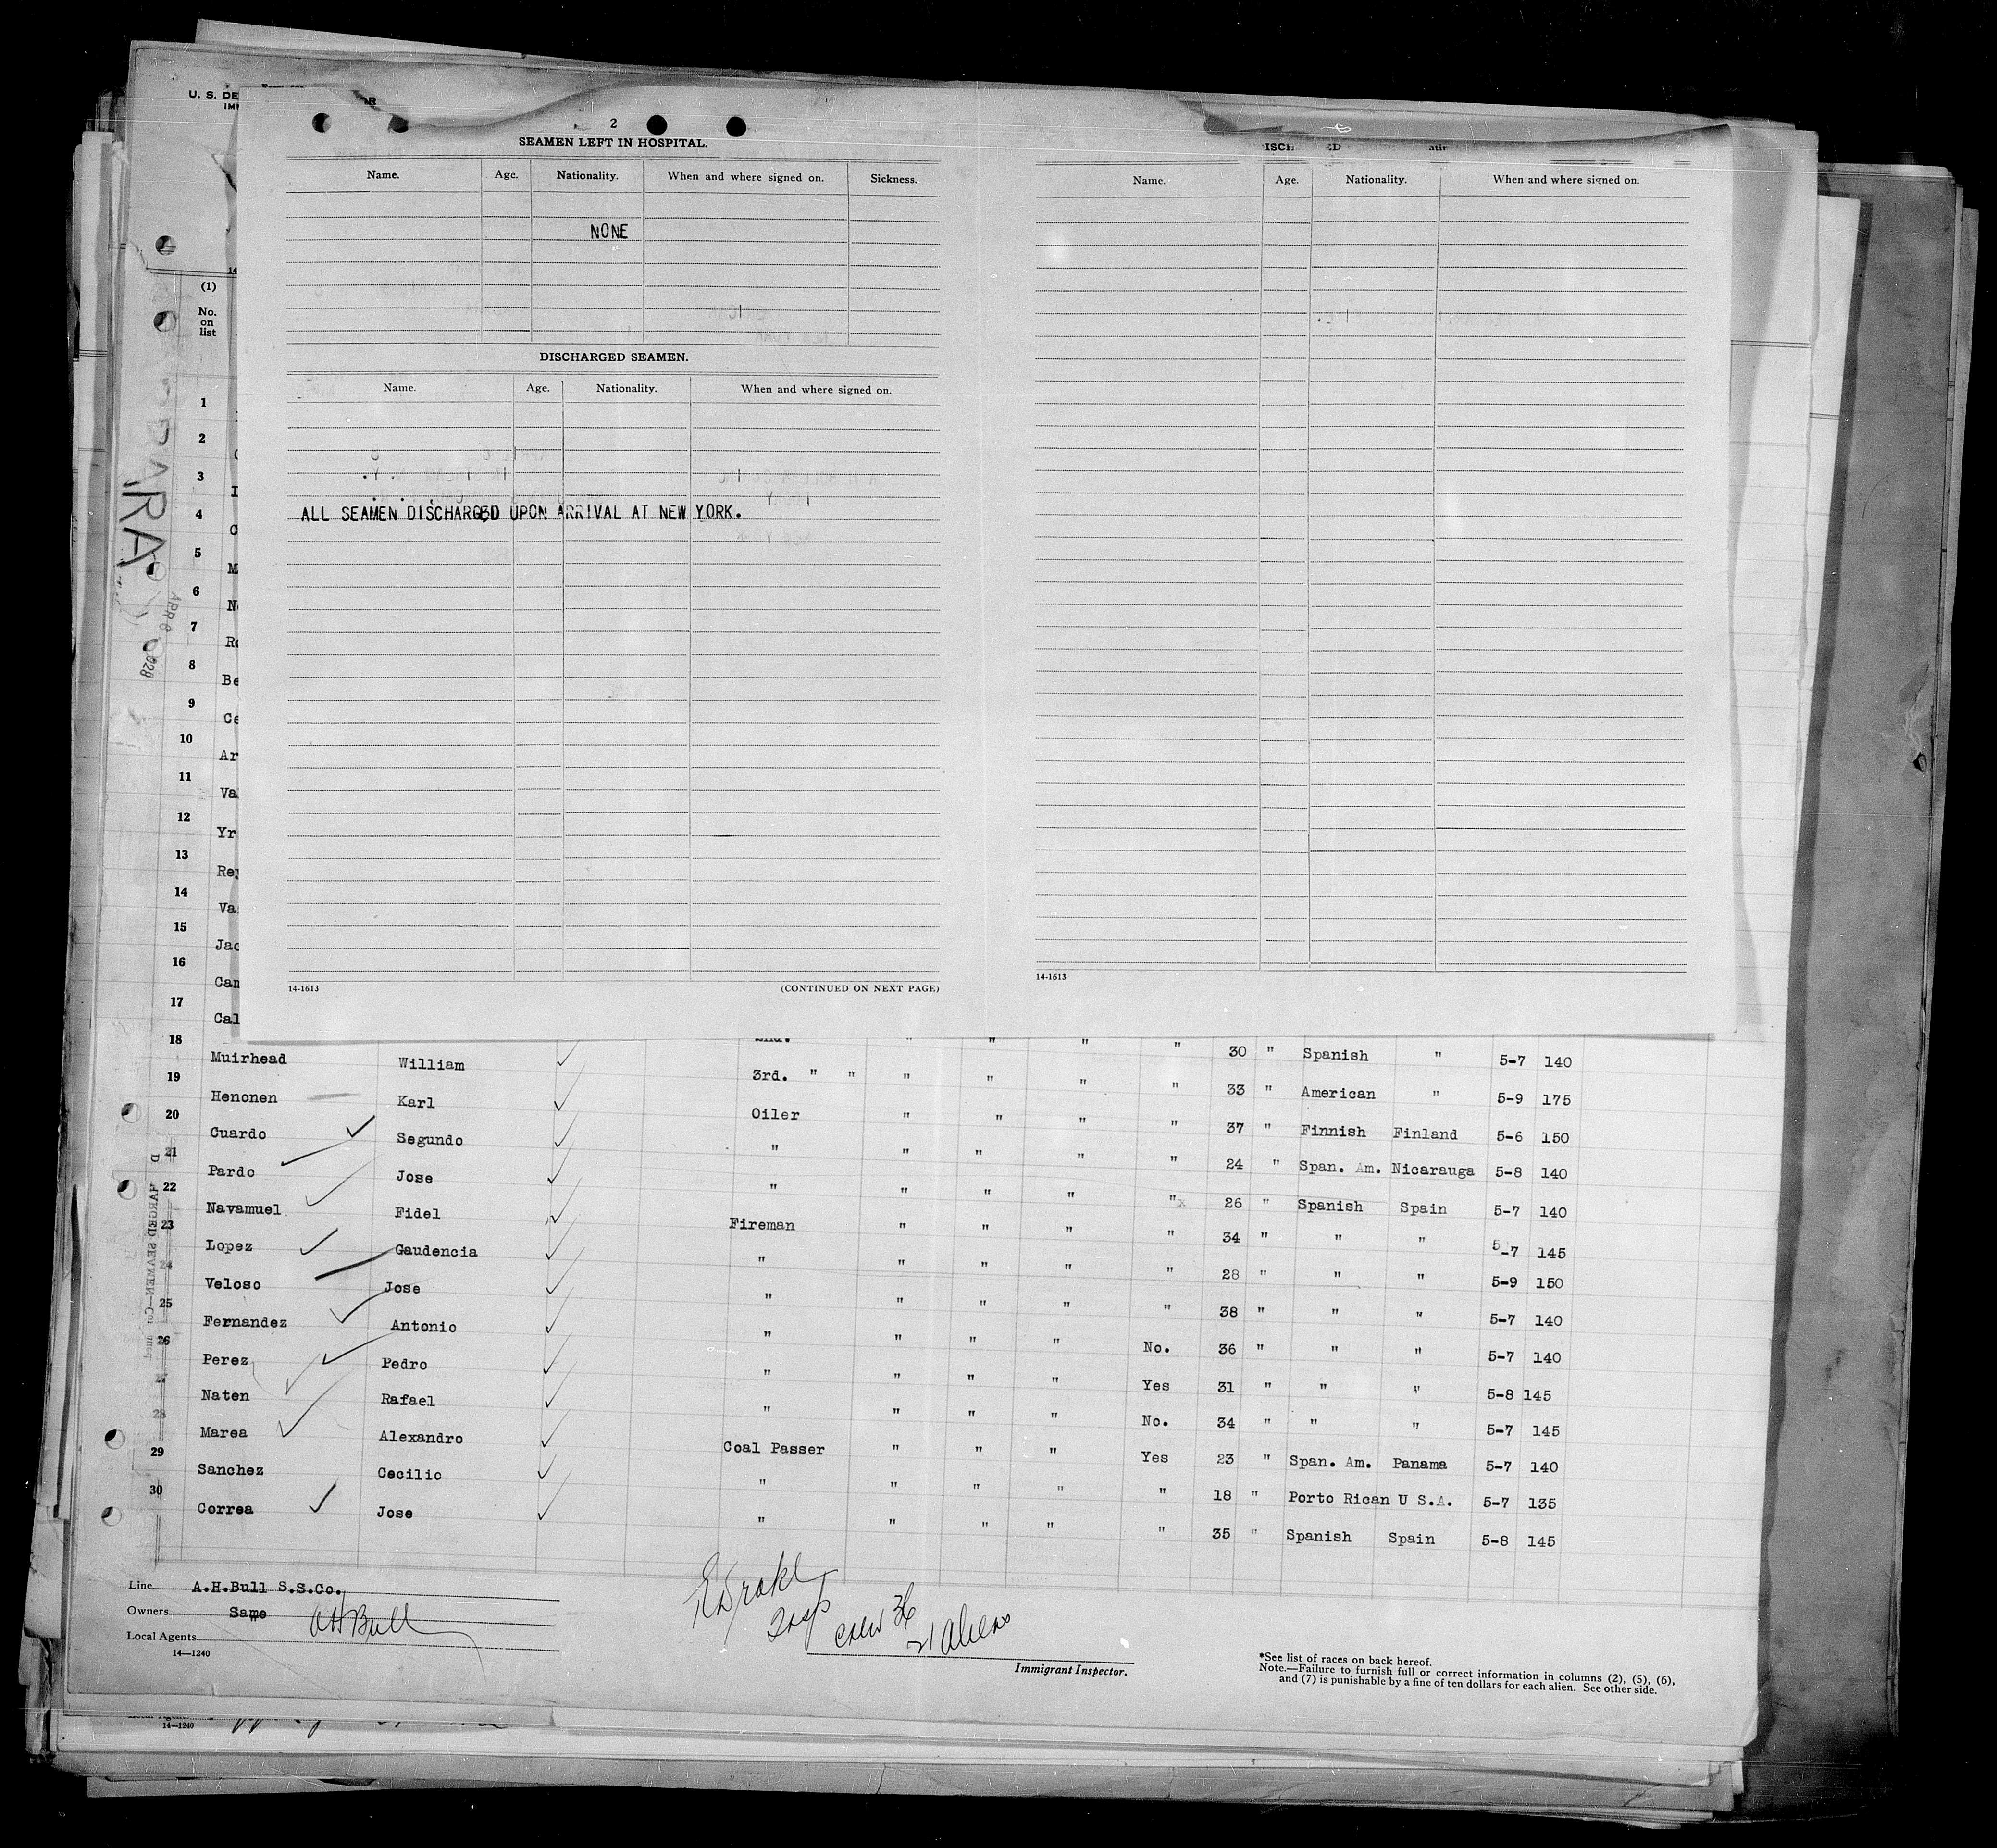 U. S. DE
2
SEAMEN LEFT IN HOSPITAL.
Name. Age. Nationality. When and where signed on. Sickness.
NONE
DISCHARGED SEAMEN.
Name. Age. Nationality. When and where signed on.
ALL SEAMEN DISCHARGED UPON ARRIVAL AT NEW YORK.
14-1613 (CONTINUED ON NEXT PAGE)
Name. Age. Nationality. When and where signed on.
14-1613
(1)
No. on list
1
2
3
4
5
6
7
8
9
10
11
12
13
14
15
16
17
18
19
20
21
22
23
24
25
26
27
28
29
30
Muirhead William 3rd. " " " " " " 30 " Spanish " 5-7 140
Henonen Karl Oiler " " " " 33 " American " 5-9 175
Cuardo Segundo " " " " " 37 " Finnish Finland 5-6 150
Pardo Jose " " " " " 24 " Span. Am. Nicarauga 5-8 140
Navamuel Fidel Fireman " " " " 26 " Spanish Spain 5-7 140
Lopez Gaudencia " " " " " 34 " " " 5-7 145
Veloso Jose " " " " " 28 " " " 5-9 150
Fernandez Antonio " " " " " 38 " " " 5-7 140
Perez Pedro " " " " No. 36 " " " 5-7 140
Naten Rafael " " " " Yes 31 " " " 5-8 145
Marea Alexandro Coal Passer " " " No. 34 " " " 5-7 145
Sanchez Cecilio " " " " Yes 23 " Span. Am. Panama 5-7 140
Correa Jose " " " " " 18 " Porto Rican U S.A. 5-7 135
" 35 " Spanish Spain 5-8 145
Line A.H.Bull S.S.Co.
Owners Same
AHBull
Local Agents
14—1240
Crew 36
21 Aliens
Immigrant Inspector.
*See list of races on back hereof.
Note.—Failure to furnish full or correct information in columns (2), (5), (6),
and (7) is punishable by a fine of ten dollars for each alien. See other side.
14—1240